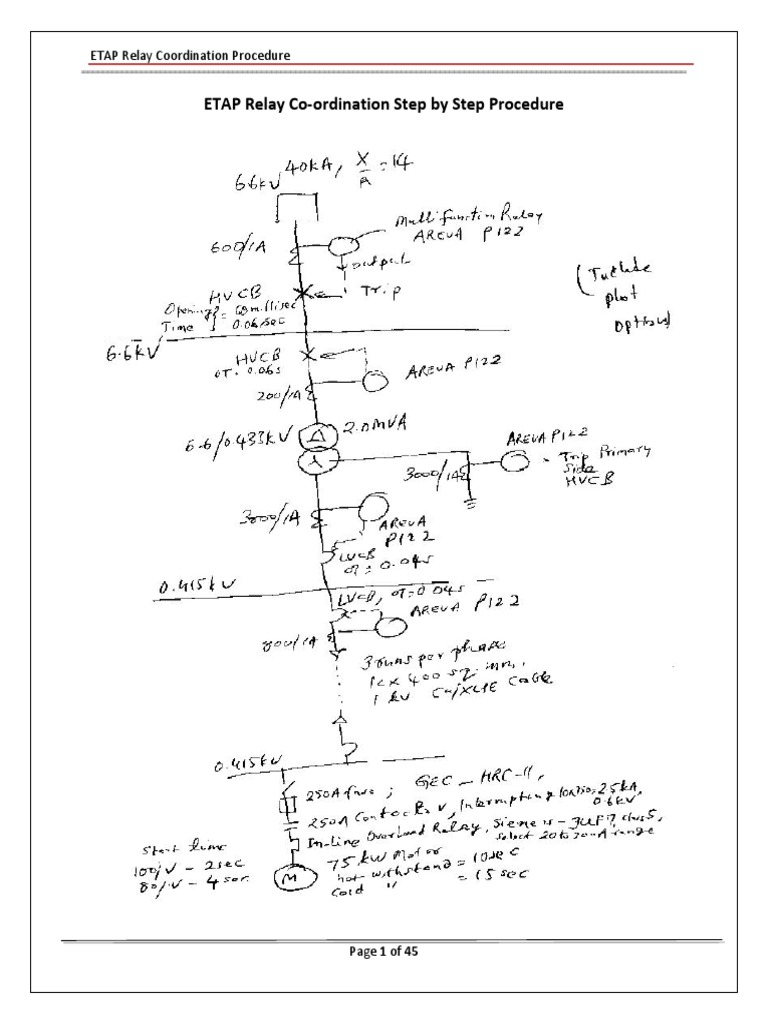 ETAP Relay Coordination Procedure
ETAP Relay Co-ordination Step by Step Procedure
6.6kV 40kA, X/R = 14
Multifunction Relay
AREVA P122
600/1A
output
Trip
HVCB
Opening = 60 millisec
Time 0.06 sec
(Include
plot
options)
6.6kV
HVCB
OT. 0.06s
AREVA P122
200/1A
2.0MVA
6.6/0.433kV
AREVA P122
Trip Primary
Side
HVCB
3000/1A
3000/1A
AREVA
P122
LVCB
OT = 0.04s
0.415kV
LVCB, OT=0.04s
AREVA P122
800/1A
3 runs per phase
1c x 400 sq. mm.
1 kV Cu/XLPE Cable
0.415kV
250A fuse; GEC - HRC-II,
250A Contactor, Interrupting 25kA,
0.6kV
In-Line Overload Relay, Siemens - 3UF7, class 5,
select 20 to 200A range
Start time
100% V - 2sec
80% V - 4sec
M
75 kW Motor
hot withstand = 10sec
Cold " = 15 sec
Page 1 of 45